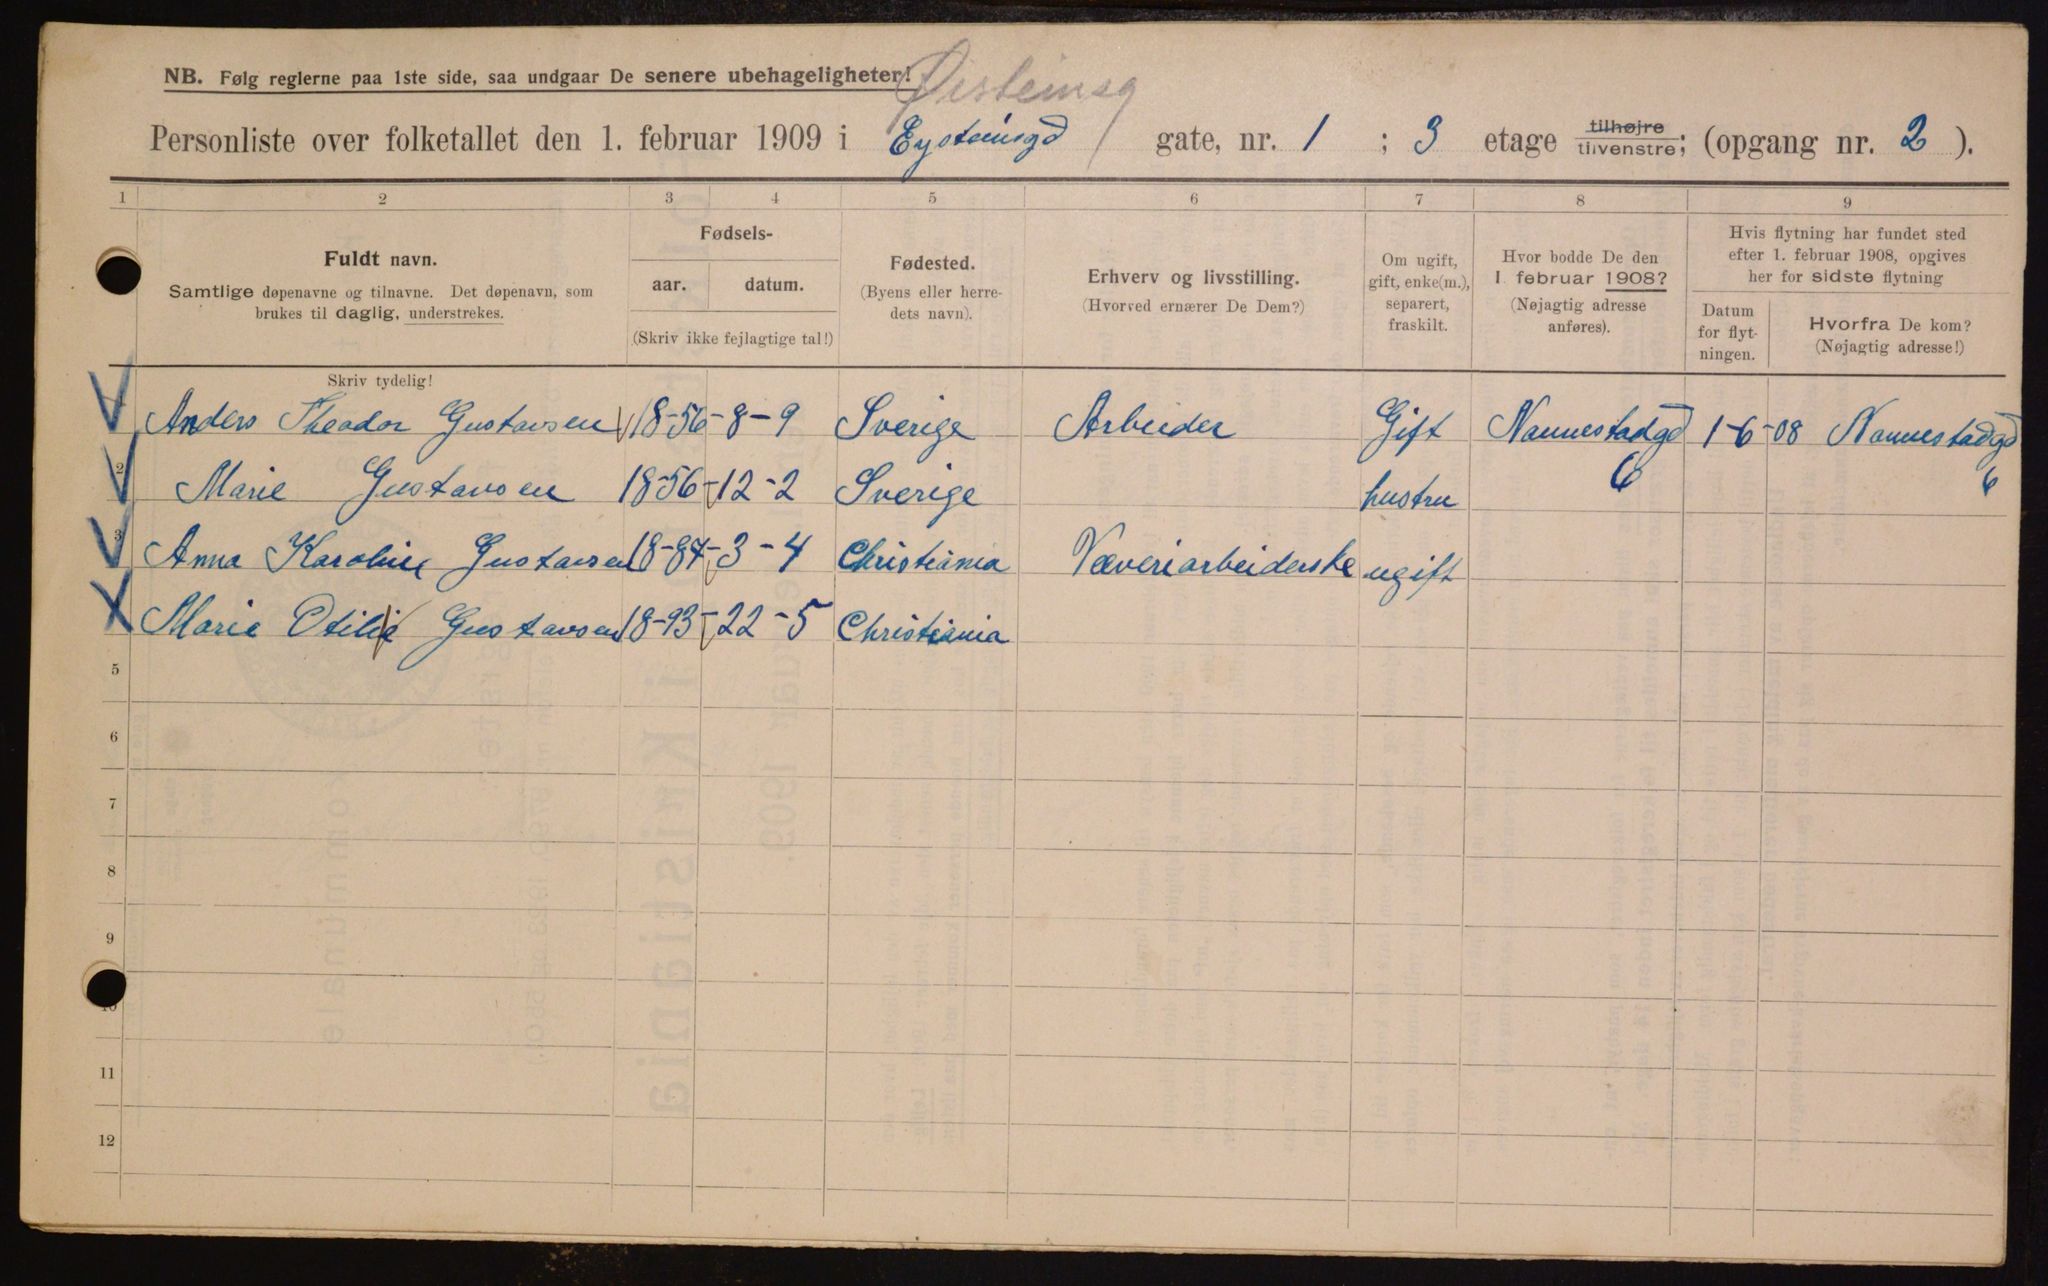 NB. Følg reglerne paa 1ste side, saa undgaar De senere ubehageligheter!
Øisteinsg
Personliste over folketallet den 1. februar 1909 i Eysteinsgd gate, nr. 1 ; 3 etage tilhøjre tilvenstre; (opgang nr. 2 ).
1 2 3 4 5 6 7 8 9
Fuldt navn.
Samtlige døpenavne og tilnavne. Det døpenavn, som
brukes til daglig, understrekes.
Fødsels-
aar. datum.
(Skriv ikke fejlagtige tal!)
Fødested.
(Byens eller herre-
dets navn).
Erhverv og livsstilling.
(Hvorved ernærer De Dem?)
Om ugift,
gift, enke(m.),
separert,
fraskilt.
Hvor bodde De den
1 februar 1908?
(Nøjagtig adresse
anføres).
Hvis flytning har fundet sted
efter 1. februar 1908, opgives
her for sidste flytning
Datum
for flyt-
ningen.
Hvorfra De kom?
(Nøjagtig adresse!)
Skriv tydelig!
Anders Theodor Gustavsen 18-56-8-9 Sverige Arbeider Gift Nannestadgd 6 1-6-08 Nannestadgd 6
2 Marie Gustavsen 18-56-12-2 Sverige hustru
3 Anna Karoline Gustavsen 18-84-3-4 Christiania Væveriarbeiderske ugift
Marie Otilie Gustavsen 18-93-22-5 Christiania
5
6
7
8
9
10
11
12